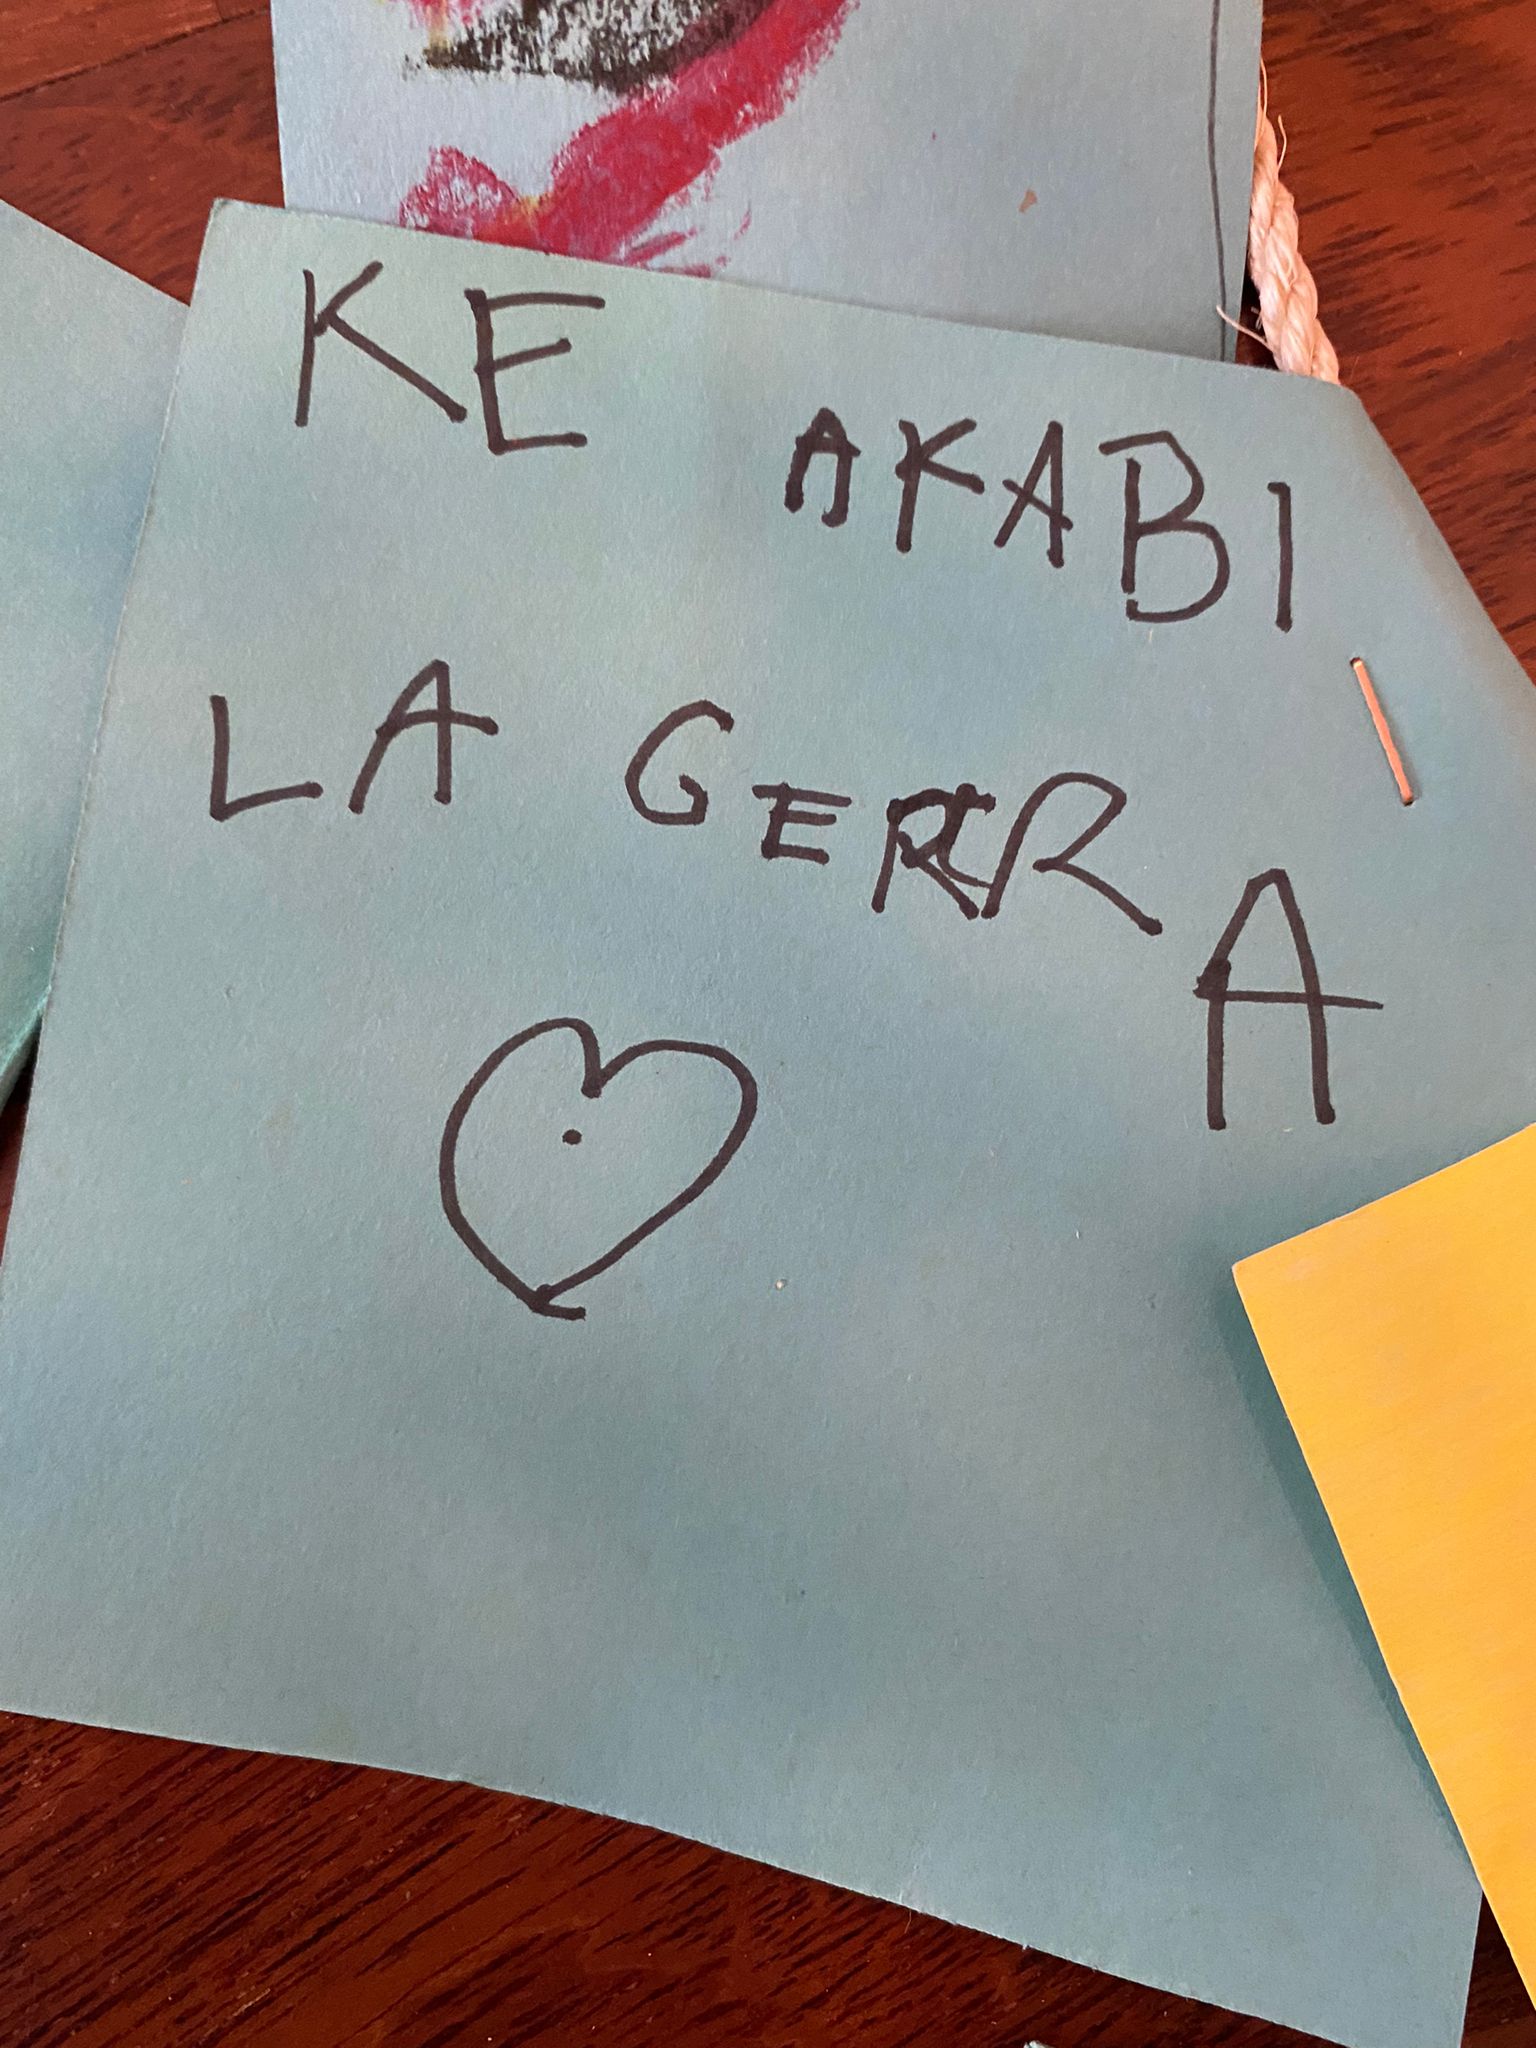 KE AKABI
LA GERRA